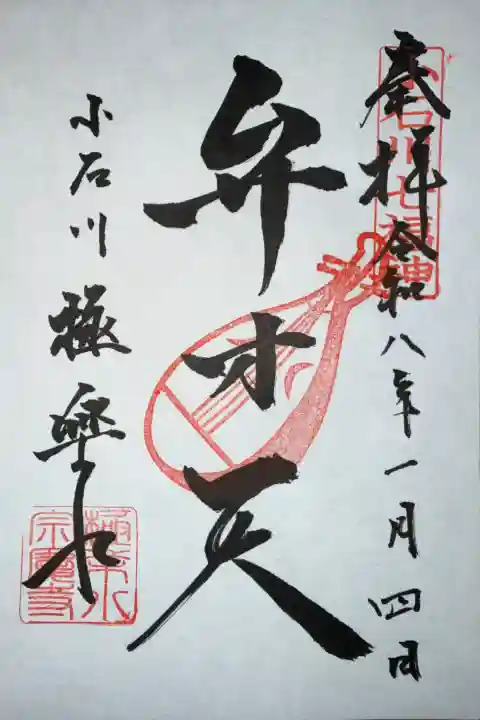 奉拝 令和八年一月四日
小石川七福神
弁才天
小石川 極楽水
極楽水
宗慶寺